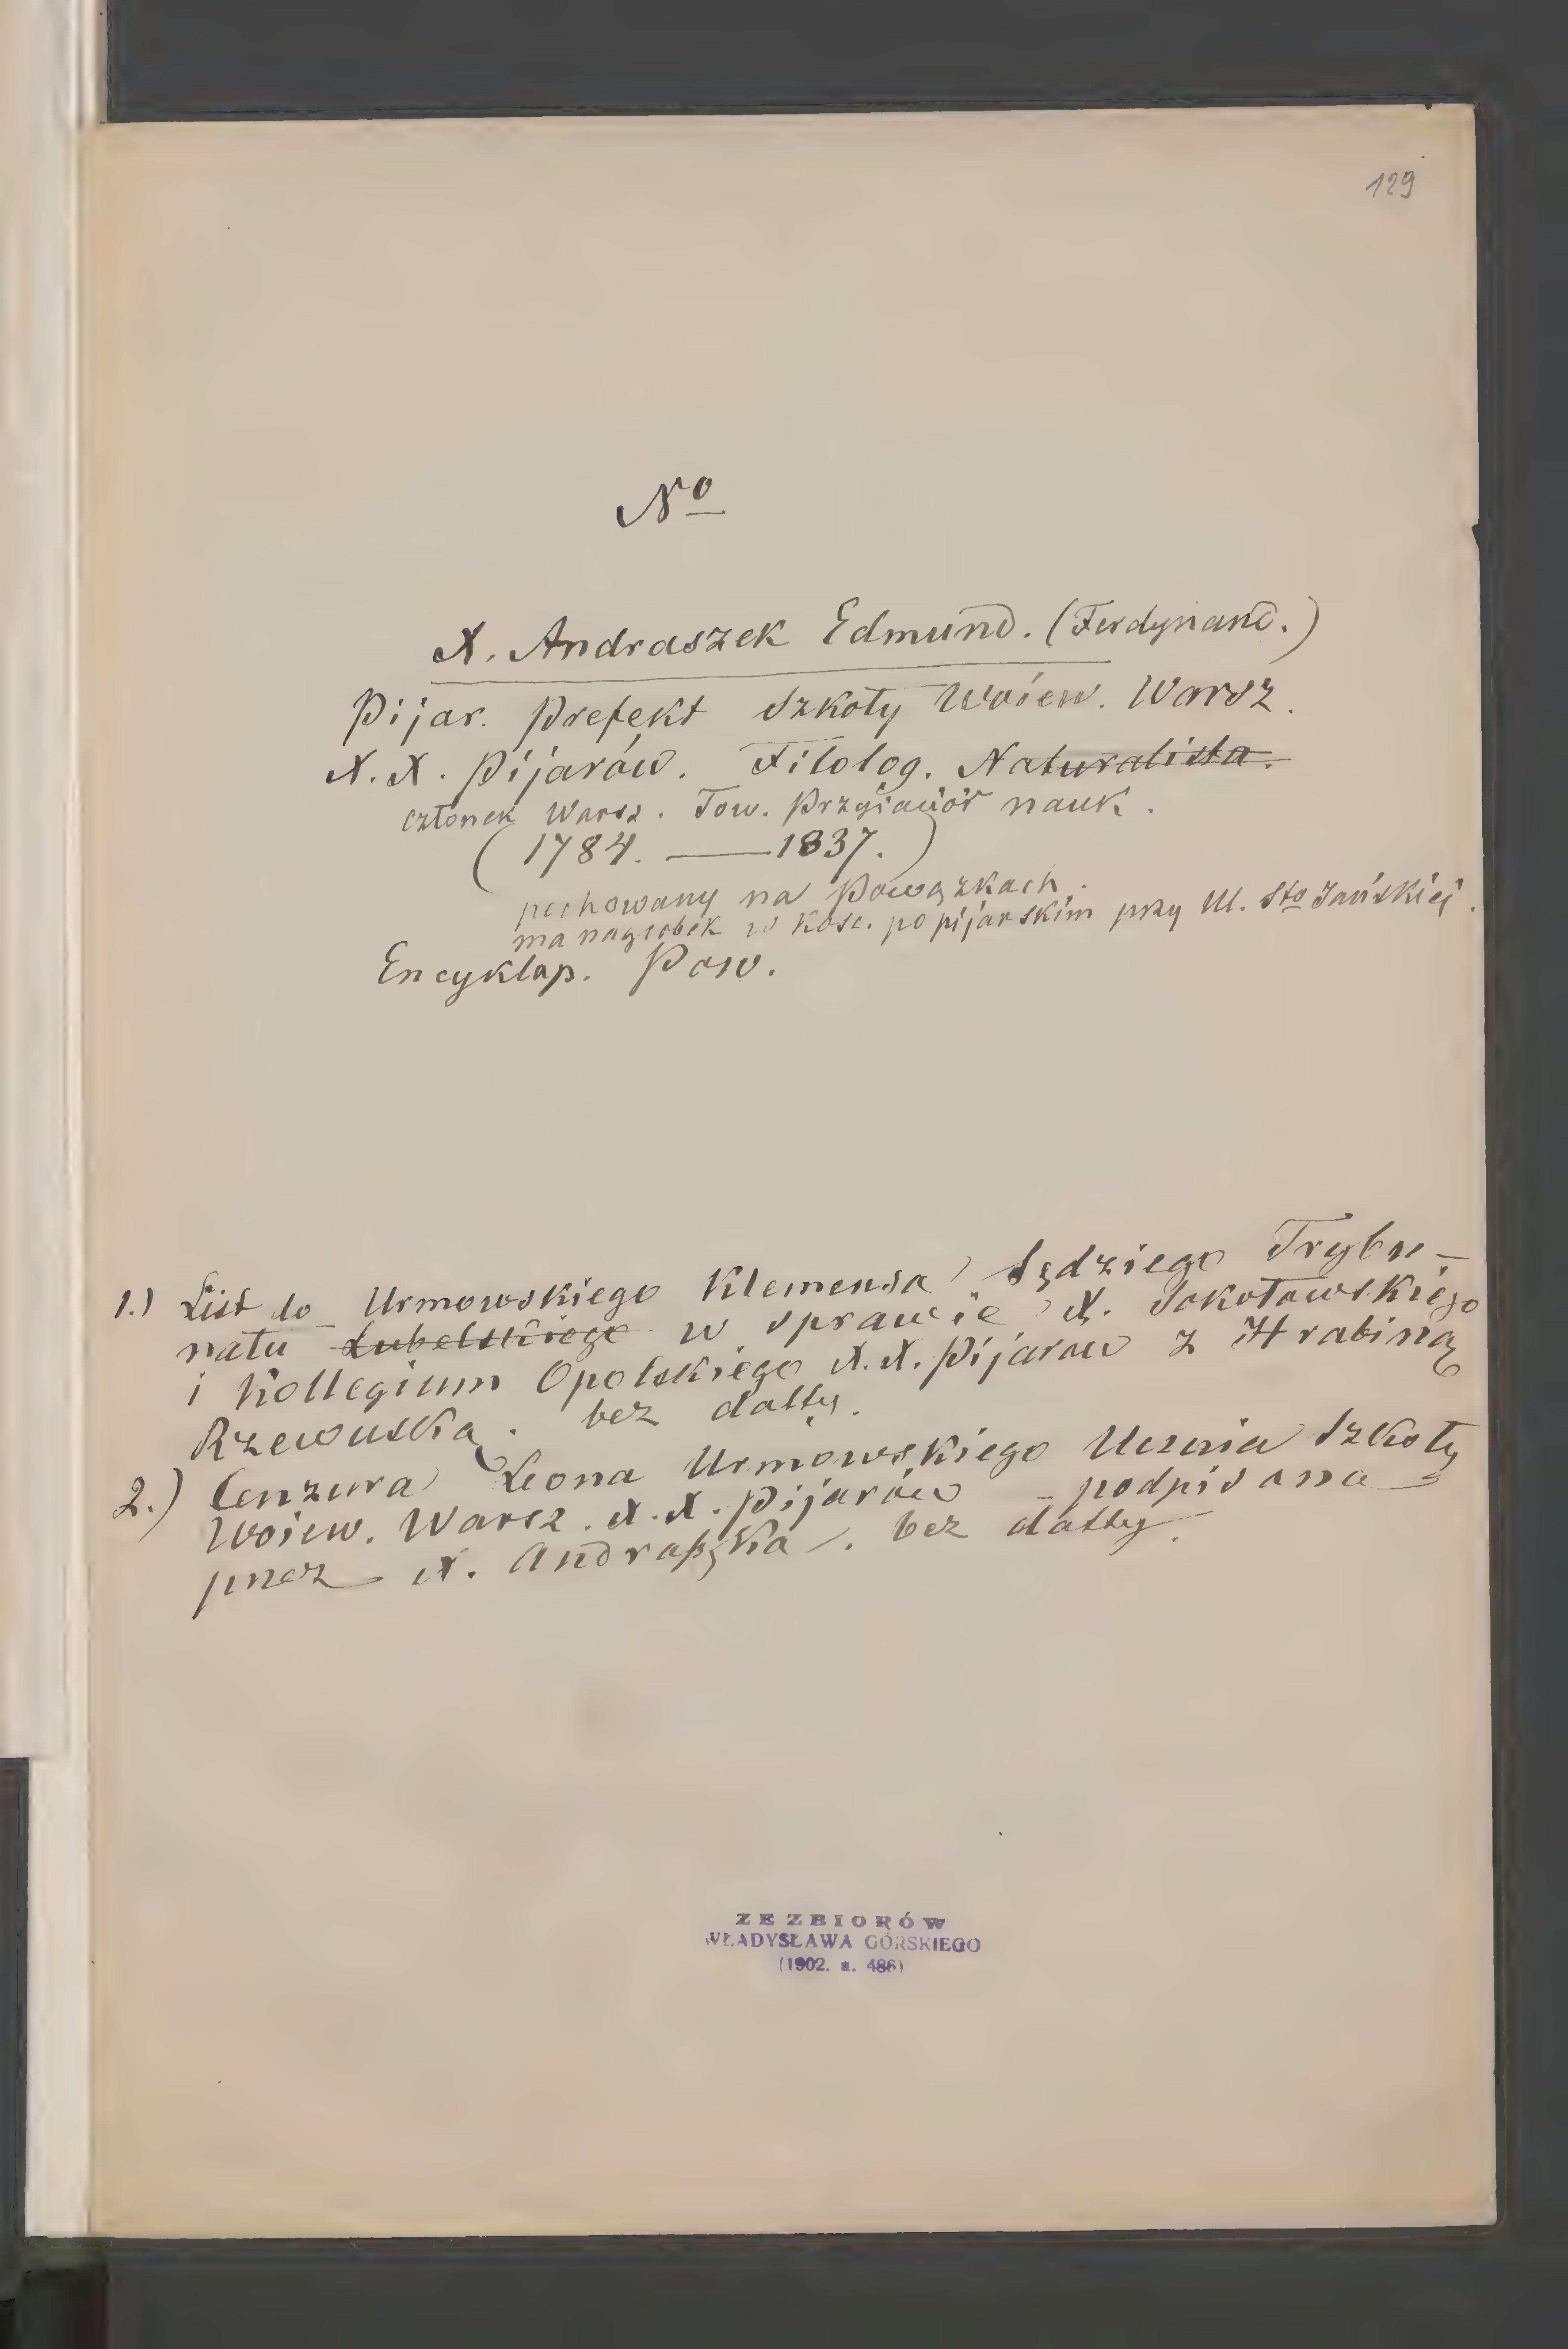 129
Nº
X. Andraszek Edmund. (Ferdynand.)
Pijar. Prefekt Szkoły Woiew. Warsz.
X. X. Pijarów. Filolog. Naturalista.
członek Warsz. Tow. Przyiaciół nauk.
(1784. — 1837.)
pochowany na Powązkach.
ma nagrobek w kośc. popijarskim przy Ul. Sto Jańskiej.
Encyklop. Pow.
1.) List do Urmowskiego Klemensa Sędziego Trybu-
nału Lubelskiego w sprawie X. Sokołowskiego
i Kollegium Opolskiego X. X. Pijarow z Hrabiną
Rzewuską. bez datty.
2.) Cenzura Leona Urmowskiego Ucznia Szkoły
Woiew. Warsz. X. X. Pijarów - podpisana
przez X. Andraszka. bez datty.
ZE ZBIORÓW
WŁADYSŁAWA GÓRSKIEGO
(1902. a. 486)